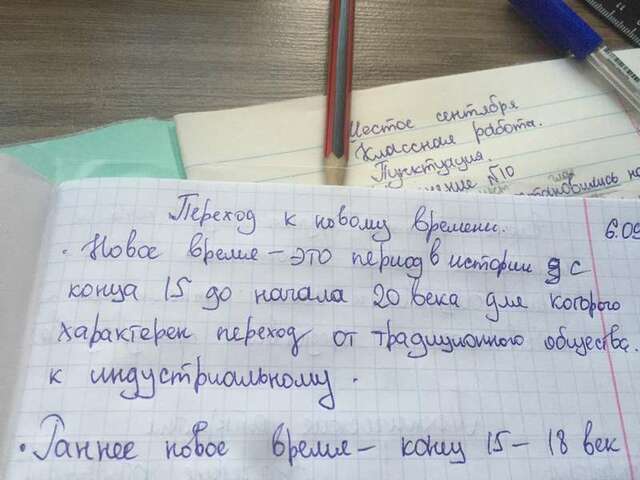 Шестое сентября
Классная работа.
Пунктуация.
№10
Переход к новому времени.
6.09
• Новое время – это период в истории с
конца 15 до начала 20 века для которого
характерен переход от традиционного общества.
к индустриальному.
• Раннее новое время – конец 15 – 18 век